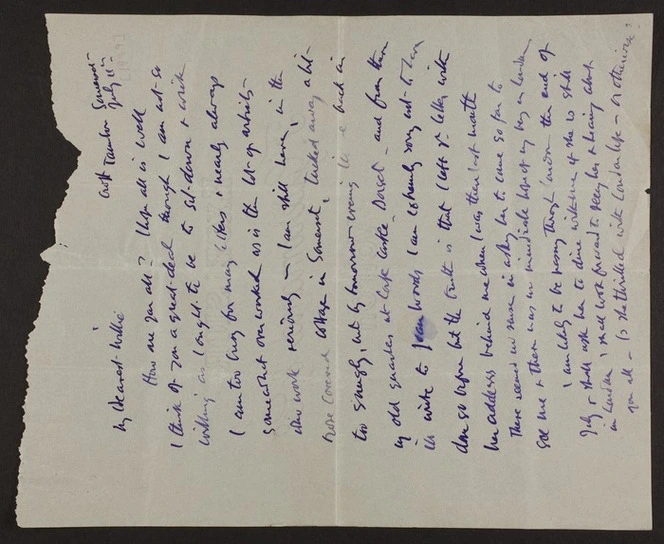 Croft Taunton Somerset
July 15
My dearest Mollie
How are you all? I hope all is well
I think of you a great deal though I am not so
willing as I ought to be to sit down & write
I am too busy for many letters & nearly always
somewhat overworked as is the lot of artists
who work seriously — I am still here, in the
Rose Covered Cottage in Somerset, tucked away a bit
too snugly, but by tomorrow evening I'll be back in
my old quarters at Corfe Castle, Dorset — and from there
I'll write to Jean words I am extremely sorry not to have
done so before but the truth is that I left yr letter with
her address behind me when I was there last month
There seemed no sense in asking her to come so far to
see me & there was no immediate hope of my being in London
I am likely to be passing through London the end of
July & shall ask her to dine with me if she is still
in London I shall look forward to seeing her & hearing about
you all — Is she thrilled with London life — or otherwise?